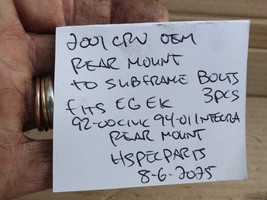 2001 CRV OEM
REAR MOUNT
TO SUBFRAME BOLTS
fits EG EK 3PCS
92-00 CIVIC 94-01 INTEGRA
REAR MOUNT
HSPECPARTS
8-6-2025